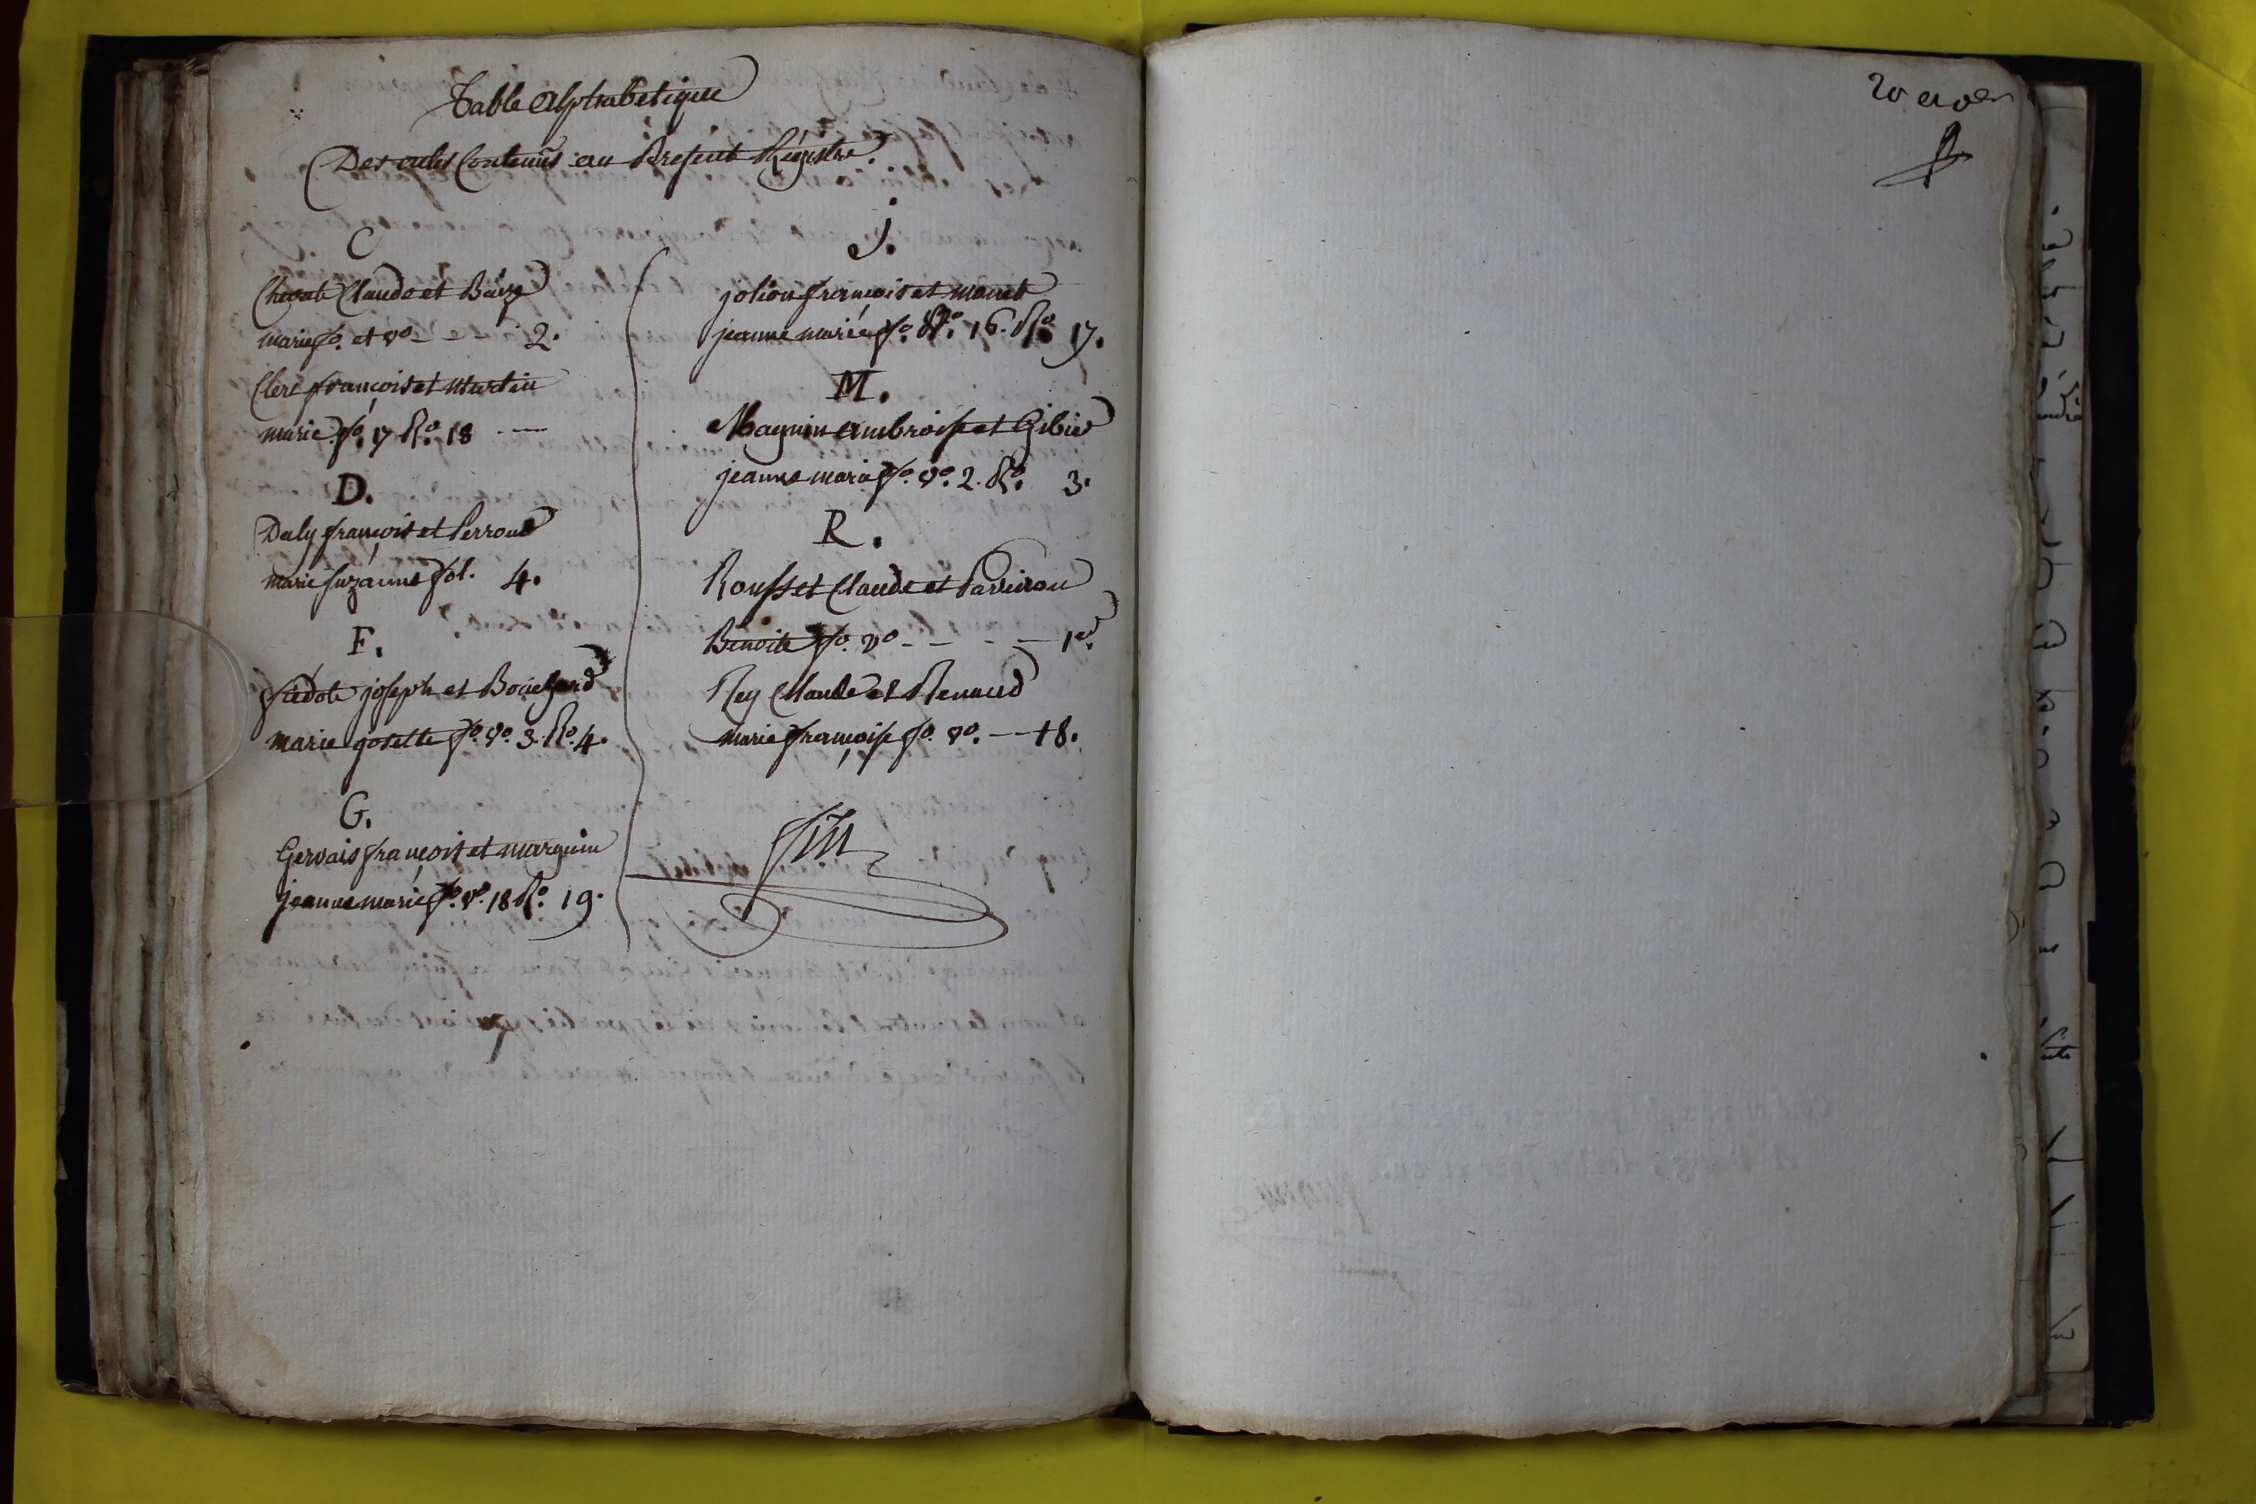 Table Alphabetique
Des actes Contenus au Present Régistre.
C
Claude et
marie fo. et vo - - - 2.
Clerc françois et Martin
marie fo. 17 Ro. 18 - -
D.
Daly françois et Perroud
marie suzanne fol. 4.
F.
joseph et
marie josette fo. vo. 3. Ro. 4.
G.
Gervais françois et marguin
jeanne marie fo. vo. 18 Ro. 19.
J.
jolion françois et monet
jeanne marie fo. 16. Ro. 17.
M.
Magnin Ambroise et Gibie
jeanne marie fo. vo. 2. Ro. 3.
R.
Rousset Claude et
Benoite fo. vo - - - - 1er.
Rey Claude et Renaud
marie françoise fo. vo. - - 18.
fin
20